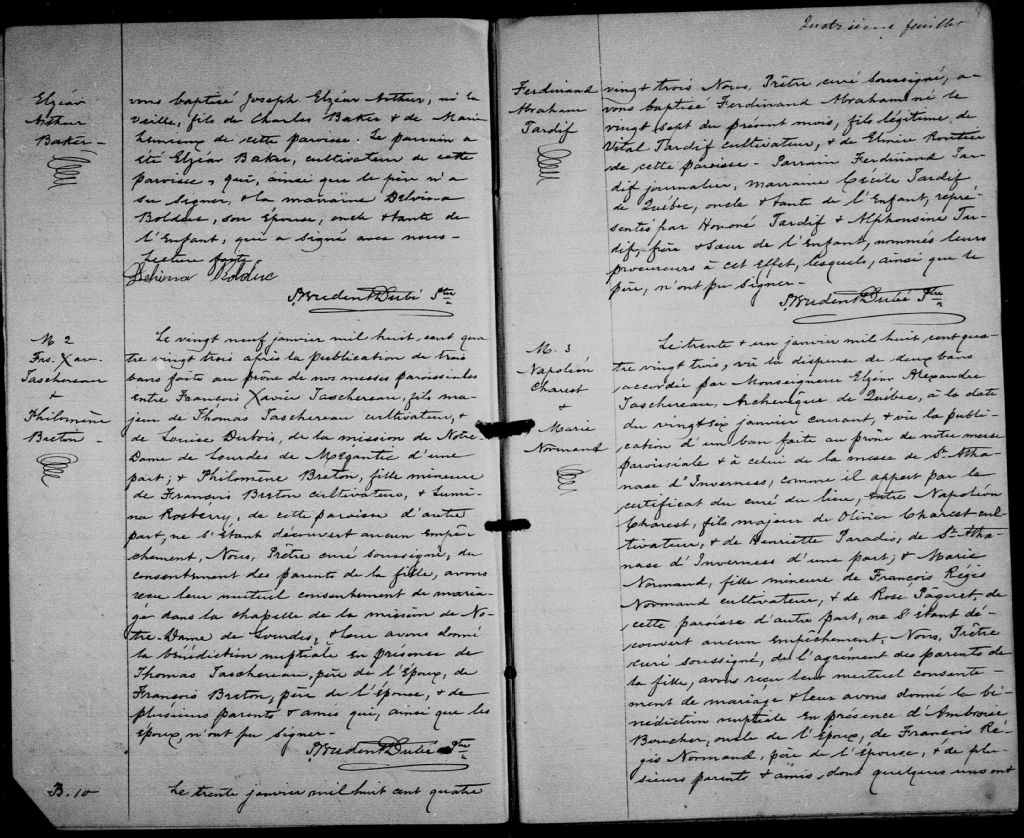 Elzéar
Arthur
Baker -
vons baptisé Joseph Elzéar Arthur, né la
veille, fils de Charles Baker & de Marie
Lemieux de cette paroisse. Le parrain a
été Elzéar Baker, cultivateur de cette
paroisse, qui, ainsi que le père n'a
su signer, & la marraine Delvina
Bolduc, son épouse, oncle & tante de
l'Enfant, qui a signé avec nous -
Lecture faite
Delvina Bolduc
P. Prudent Dubé Ptre
M 2
Frs. Xav.
Taschereau
+
Philomène
Breton
Le vingt neuf janvier mil huit cent qua
tre vingt trois après la publication de trois
bans faite au prône de nos messes paroissiales
Entre François Xavier Taschereau, fils ma-
jeur de Thomas Taschereau cultivateur, &
de Louise Dubois, de la mission de Notre
Dame de Lourdes de Mégantic d'une
part; & Philomène Breton, fille mineure
de François Breton cultivateur, & Lumi-
na Rosberry, de cette paroisse d'autre
part, ne s'Etant découvert aucun Empê-
chement, Nous, Prêtre curé soussigné, du
consentement des parents de la fille, avons
reçu leur mutuel consentement de maria-
ge dans la chapelle de la mission de No-
tre-Dame de Lourdes, & leur avons donné
la bénédiction nuptiale en présence de
Thomas Taschereau, père de l'Epoux, de
François Breton, père de l'épouse, & de
plusieurs parents & amis qui, ainsi que les
époux, n'ont pu signer -
P. Prudent Dubé Ptre
B. 10
Le trente janvier mil huit cent quatre
Quatrième feuillet
Ferdinand
Abraham
Tardif
vingt trois Nous, Prêtre curé soussigné, a-
vons baptisé Ferdinand Abraham né le
vingt sept du présent mois, fils légitime de
Vital Tardif cultivateur, & de Elmire Routier
de cette paroisse - Parrain Ferdinand Tar-
dif journalier, marraine Cécile Tardif
de Québec, oncle & tante de l'Enfant, repré-
sentés par Honoré Tardif & Alphonsine Tar-
dif, frère & sœur de l'Enfant, nommés leurs
procureurs à cet effet, lesquels, ainsi que le
père, n'ont pu signer -
P. Prudent Dubé Ptre
M. 3
Napoléon
Charest
+
Marie
Normand
Le trente & un janvier mil huit cent qua-
tre vingt trois, vu la dispense de deux bans
accordée par Monseigneur Elzéar Alexandre
Taschereau, Archevêque de Québec, à la date
du vingt six janvier courant, & vu la publi-
cation d'un ban faite au prône de notre messe
paroissiale & à celui de la messe de St-Atha-
nase d'Inverness, comme il appert par le
certificat du curé du lieu, entre Napoléon
Charest, fils majeur de Olivier Charest cul-
tivateur, & de Henriette Paradis, de St-Atha-
nase d'Inverness d'une part; & Marie
Normand, fille mineure de François Régis
Normand cultivateur, & de Rose Pâquet, de
cette paroisse d'autre part, ne s'étant dé-
couvert aucun Empêchement, Nous, Prêtre
curé soussigné, de l'agrément des parents de
la fille, avons reçu leur mutuel consente-
ment de mariage & leur avons donné la bé-
nédiction nuptiale en présence d'Ambroise
Boucher, oncle de l'Epoux, de François Ré-
gis Normand, père de l'épouse, & de plu-
sieurs parents & amis, dont quelques uns ont